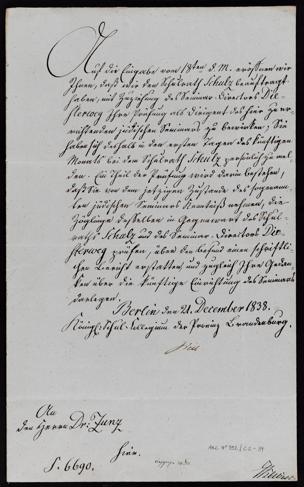 Auf die Eingabe vom 18ten d. M. eröffnen wir
Ihnen, daß wir den Schulrath Schulz beauftragt
haben, mit Zuziehung des Seminar-Directors Die-
sterweg Ihre Prüfung als Dirigent des hier zu er-
richtenden jüdischen Seminars zu bewirken; Sie
haben sich deshalb in den ersten Tagen des künftigen
Monats bei dem Schulrath Schulz persönlich zu mel-
den. Ein Theil der Prüfung wird darin bestehen,
daß Sie von dem jetzigen Zustande des sogenann-
ten jüdischen Seminars Kenntniß nehmen, die
Zöglinge desselben in Gegenwart des Schul-
raths Schulz und des Seminar-Directors Die-
sterweg prüfen, über den Befund einen schriftli-
chen Bericht erstatten und zugleich Ihre Gedan-
ken über die künftige Einrichtung des Seminars
darlegen.
Berlin den 21. December 1838.
Königl. Schul-Collegium der Provinz Brandenburg.
An
den Herrn Dr. Zunz
hier.
S. 6690.